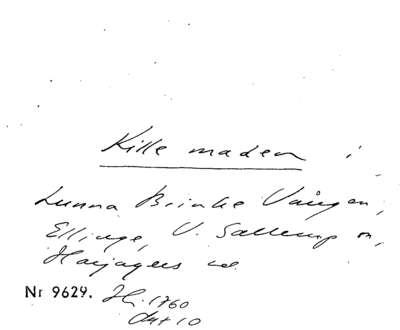 Kille maden i
Lunna Brinke Vången,
Ellinge, V. Sallerup sn,
Harjagers hd.
Nr 9629. 1760
Akt 10